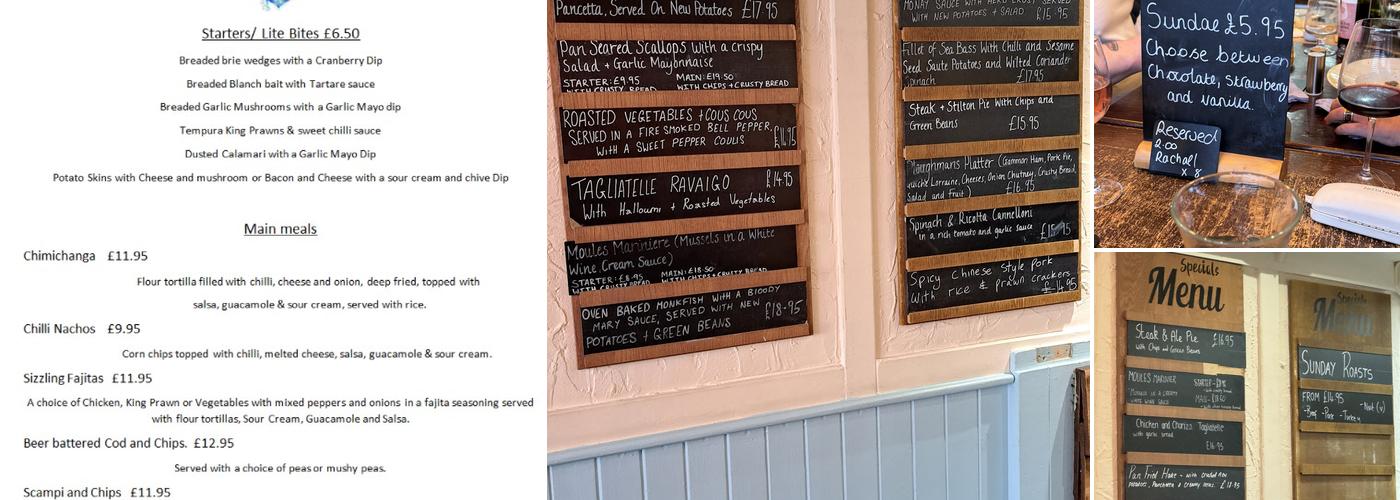 Starters/ Lite Bites £6.50
Breaded brie wedges with a Cranberry Dip
Breaded Blanch bait with Tartare sauce
Breaded Garlic Mushrooms with a Garlic Mayo dip
Tempura King Prawns & sweet chilli sauce
Dusted Calamari with a Garlic Mayo Dip
Potato Skins with Cheese and mushroom or Bacon and Cheese with a sour cream and chive Dip
Main meals
Chimichanga £11.95
Flour tortilla filled with chilli, cheese and onion, deep fried, topped with
salsa, guacamole & sour cream, served with rice.
Chilli Nachos £9.95
Corn chips topped with chilli, melted cheese, salsa, guacamole & sour cream.
Sizzling Fajitas £11.95
A choice of Chicken, King Prawn or Vegetables with mixed peppers and onions in a fajita seasoning served
with flour tortillas, Sour Cream, Guacamole and Salsa.
Beer battered Cod and Chips. £12.95
Served with a choice of peas or mushy peas.
Scampi and Chips £11.95
Pancetta, Served On New Potatoes £17.95
Pan Seared Scallops with a crispy
Salad + Garlic Mayonnaise
STARTER: £9.95 MAIN: £19.50
WITH CRUSTY BREAD WITH CHIPS + CRUSTY BREAD
ROASTED VEGETABLES + COUS COUS
SERVED IN A FIRE SMOKED BELL PEPPER,
WITH A SWEET PEPPER COULIS
TAGLIATELLE RAVAIGO £14.95
With Halloumi + Roasted Vegetables
Moules Mariniere (Mussels in a White
Wine Cream Sauce)
STARTER: £8.95 MAIN: £18.50
WITH CRUSTY BREAD WITH CHIPS + CRUSTY BREAD
OVEN BAKED MONKFISH WITH A BLOODY
MARY SAUCE, SERVED WITH NEW £18-95
POTATOES + GREEN BEANS
MONAY SAUCE WITH HERB CRUST SERVED
WITH NEW POTATOES + SALAD £15.95
Fillet of Sea Bass With Chilli and Sesame
Seed Saute Potatoes and Wilted Coriander
Spinach £17.95
Steak + Stilton Pie With Chips and
Green Beans £15.95
Ploughmans Platter (Gammon Ham, Pork Pie,
quiche Lorraine, Cheeses, Onion Chutney, Crusty Bread,
Salad and fruit) £16.95
Spinach & Ricotta Cannelloni
in a rich tomato and garlic sauce £15.95
Spicy Chinese Style Pork
with rice & prawn crackers £14.95
Sundae £5.95
Choose between
Chocolate, Strawberry
and vanilla.
Reserved
2.00
Rachael
x 8
Specials
Menu
Steak & Ale Pie
with Chips and Green Beans £16.95
MOULES MARINIER
WHITE WINE SAUCE
Chicken and Chorizo Tagliatelle
with garlic bread
£16.95
Pan Fried Hake - with crushed new
potatoes, Pancetta & creamy
Specials
Menu
SUNDAY ROASTS
FROM £14.95
-Beef -Pork -Turkey -Nut (v)